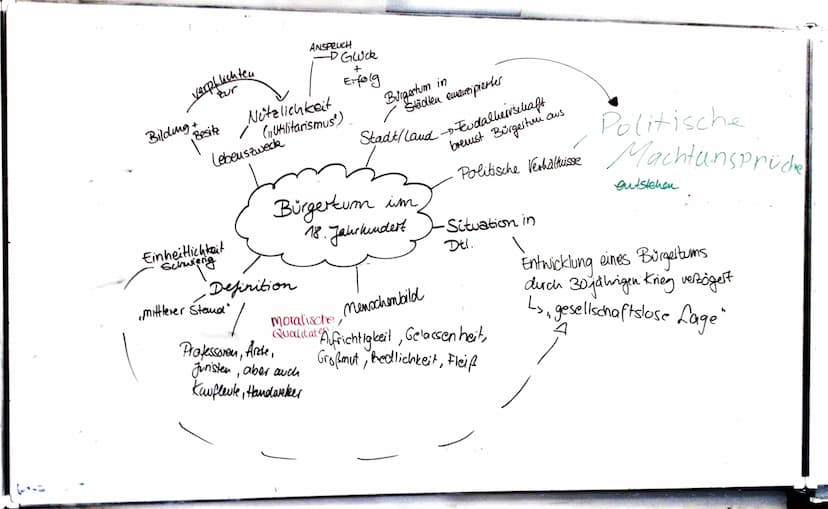 ANSPRUCH
→ Glück
+
Erfolg
verpflichten
zur
Bildung +
Besitz
Nützlichkeit
("Utilitarismus")
Lebenszweck
Bürgertum in
Städten emanzipierter
Stadt/Land → Feudalherrschaft
bremst Bürgertum aus
Politische Verhältnisse
Politische
Machtansprüche
entstehen
Bürgertum im
18. Jahrhundert
Situation in
Dtl.
Entwicklung eines Bürgertums
durch 30jährigen Krieg verzögert
↳ „gesellschaftslose Lage"
Einheitlichkeit
schwierig
Definition
„mittlerer Stand"
Professoren, Ärzte,
Juristen, aber auch
Kaufleute, Handwerker
Menschenbild
moralische
Qualitäten
Aufrichtigkeit, Gelassenheit,
Großmut, Redlichkeit, Fleiß